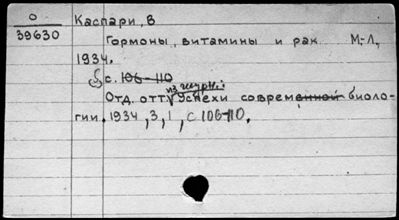 0
39630
Каспари, В
Гормоны, витамины и рак М.-Л,
1934.
с. 106-110
из журн.:
Отд. отт. Успехи современной биоло-
гии. 1934, 3, 1, с 106-110.